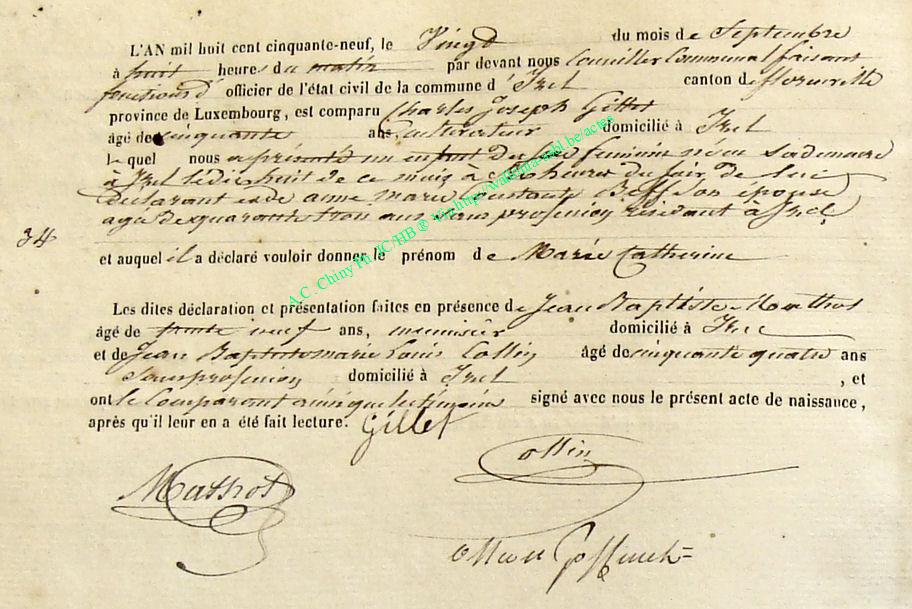 L'AN mil huit cent cinquante-neuf, le Vingd du mois de Septembre
à huit heures du matin par devant nous Conseiller Communal faisant
fonctions d' officier de l'état civil de la commune d' Izel canton de florenville
province de Luxembourg, est comparu Charles Joseph Gillet
âgé de cinquante ans Cultivateur domicilié à Izel
lequel nous a présenté un enfant du sexe feminin née
à Izel le dix huit de ce mois a heures du soir de lui
declarant et de anne marie son épouse
agée de quarante ans sans profession résidant à Izel
34
et auquel il a déclaré vouloir donner le prénom de Marie Catherine
Les dites déclaration et présentation faites en présence de Jean Baptiste Mathot
âgé de trente neuf ans, menuisier domicilié à Izel
et de Jean Baptiste marie Louis Collin âgé de cinquante quatre ans
sans profession domicilié à Izel , et
ont le Comparant ainsi que les témoins signé avec nous le présent acte de naissance,
après qu'il leur en a été fait lecture. Gillet
Mathot
Collin
A.C. Chiny Ph. JC/HB ® via http://wallonia-asbl.be/actes